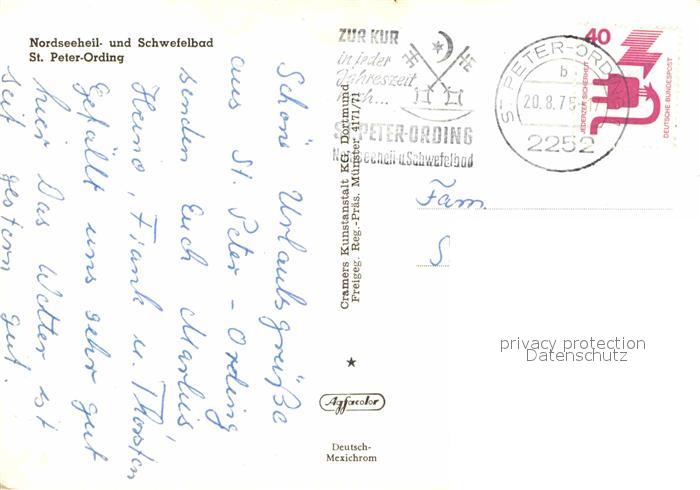 Nordseeheil- und Schwefelbad
St. Peter-Ording
Schöne Urlaubsgrüße
aus St. Peter-Ording
senden Euch Marlies,
Heino, Frank u. Thorsten
Gefällt uns sehr gut
hier Das Wetter ist
seit gestern gut.
Cramers Kunstanstalt KG, Dortmund
Freigeg. Reg.-Präs. Münster 4171/71
Agfacolor
Deutsch-
Mexichrom
ZUR KUR
in jeder
Jahreszeit
ST. PETER-ORDING
Nordseeheil-u.Schwefelbad
ST. PETER-ORDING
b
20.8.75
2252
40
JEDERZEIT SICHERHEIT
DEUTSCHE BUNDESPOST
Fam.
S
privacy protection
Datenschutz